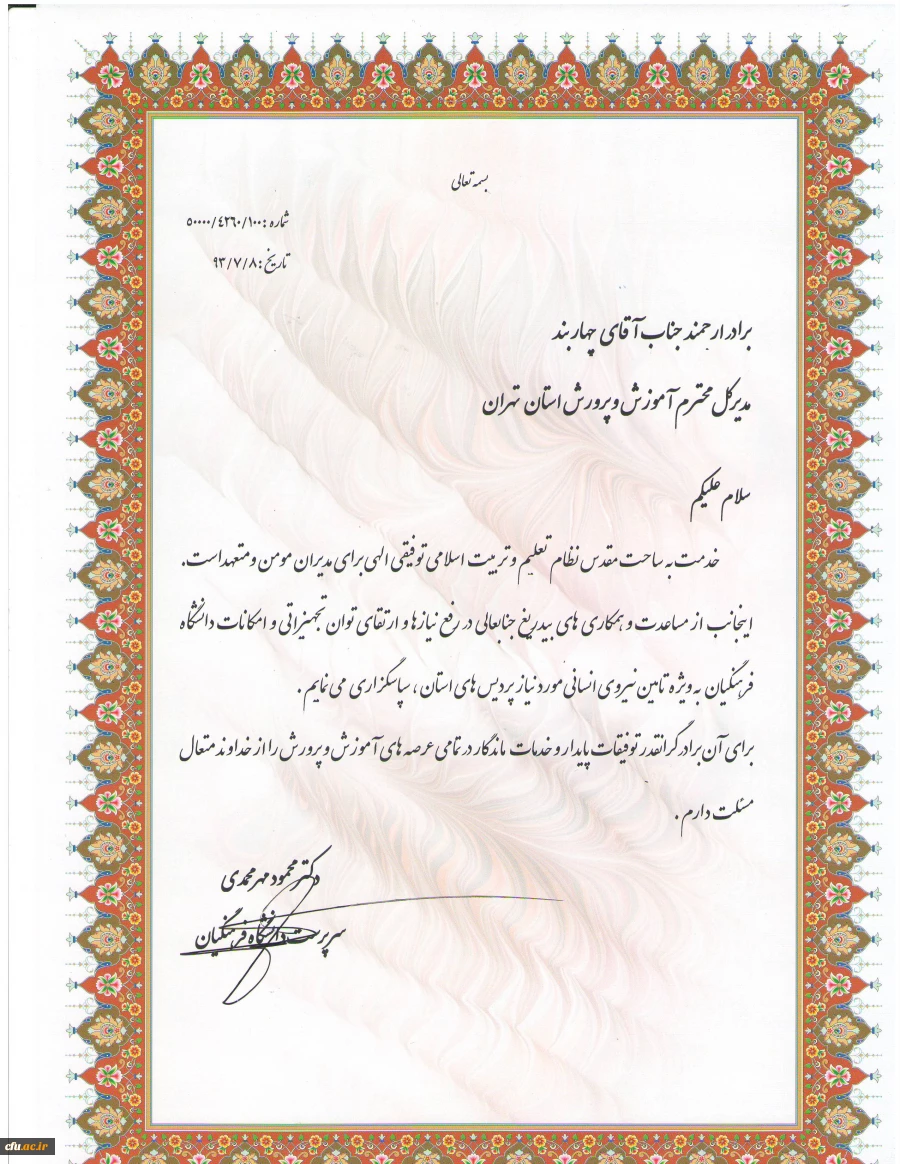 بسمه تعالی
شماره : ۵۰۰۰۰/۴۲۶۰/۱۰۰
تاریخ : ۹۳/۷/۸
برادر ارجمند جناب آقای چهاربند
مدیرکل محترم آموزش و پرورش استان تهران
سلام علیکم
خدمت به ساحت مقدس نظام تعلیم و تربیت اسلامی توفیقی الهی برای مدیران مومن و متعهد است.
اینجانب از مساعدت و همکاری های بیدریغ جنابعالی در رفع نیازها و ارتقای توان تجهیزاتی و امکانات دانشگاه
فرهنگیان به ویژه تامین نیروی انسانی مورد نیاز پردیس های استان ، سپاسگزاری می نمایم .
برای آن برادر گرانقدر توفیقات پایدار و خدمات ماندگار در تمامی عرصه های آموزش و پرورش را از خداوند متعال
مسئلت دارم .
دکتر محمود مهرمحمدی
سرپرست دانشگاه فرهنگیان
cfu.ac.ir